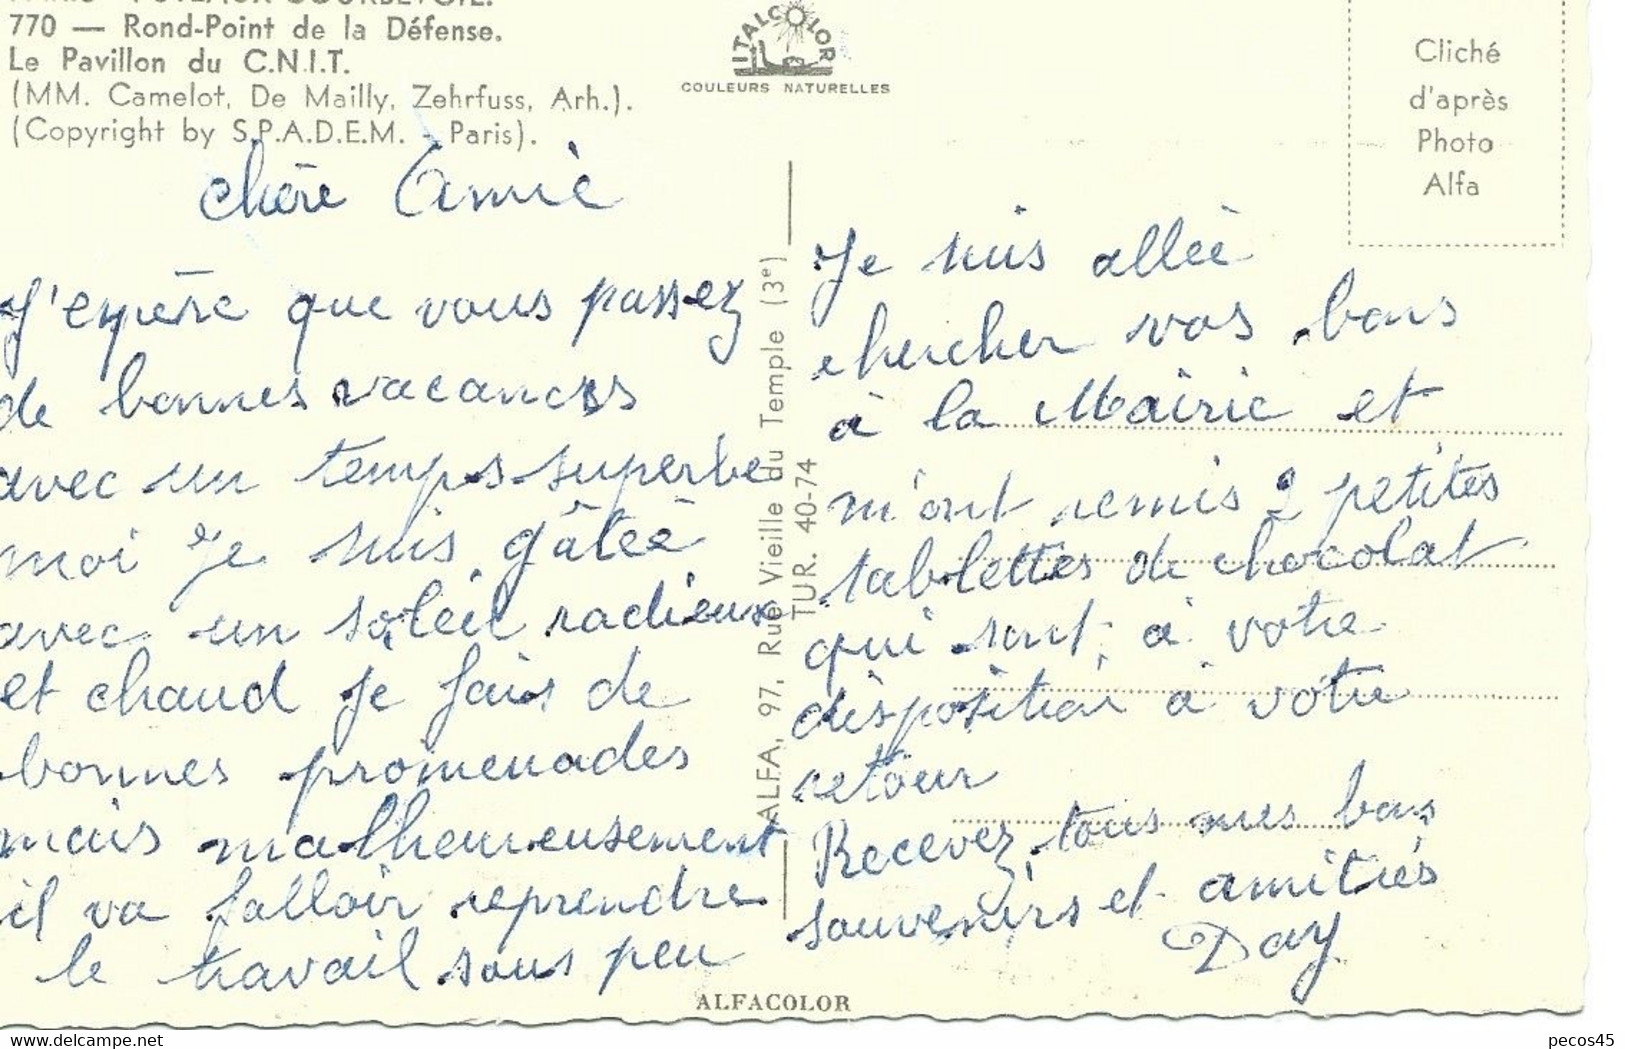 770 — Rond-Point de la Défense.
Le Pavillon du C.N.I.T.
(MM. Camelot, De Mailly, Zehrfuss, Arh.).
(Copyright by S.P.A.D.E.M. - Paris).
ITALCOLOR
COULEURS NATURELLES
Cliché
d'après
Photo
Alfa
chère Amie
J'espère que vous passez
de bonnes vacances
avec un temps superbe
moi je suis gâtée
avec un soleil radieux
et chaud je fais de
bonnes promenades
mais malheureusement
il va falloir reprendre
le travail sous peu
ALFA, 97, Rue Vieille du Temple (3e)
TUR. 40-74
Je suis allée
chercher vos bons
à la Mairie et
m'ont remis 2 petites
tablettes de chocolat
qui sont à votre
disposition à votre
retour
Recevez tous mes bons
souvenirs et amitiés
Day
ALFACOLOR
delcampe.net
pecos45